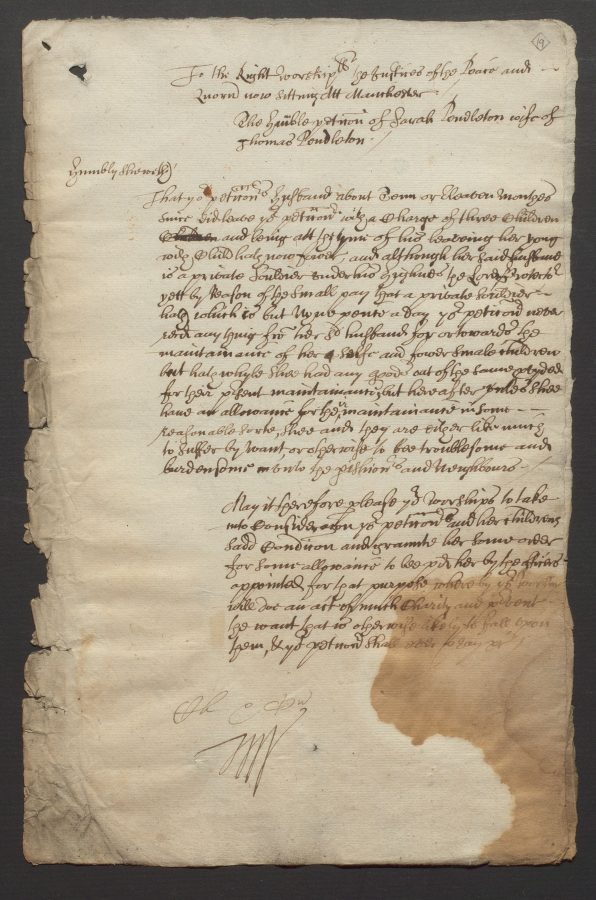 19
To the Right worship:ll the Justices of the Peace and
Quorū now sitting Att Manchester
The Hūble petitiōn of Sarah Pendleton wife of
Thomas Pendleton
Humbly Sheweth
That yor petitionrs Husband about Tenn or Eleaven Monthes
since did leave yor petitionr with a Charge of three Children
and being att the tyme of his leaving her yong
with Child hath now fower, and although her said Husband
is a private Souldier under his Highnes the Lord Protectr
yett by Reason of the Small pay that a private Souldier
hath which is but Nyne pence a day yor petitionr never
recd any thing frō her sd husband for or towards the
maintainance of her selfe and fower Smale Children
but hath whyle shee had any goods out of the same pvyded
for their psent maintainance, but hereafter unles shee
have an allowance for their maintainance in some
reasonable sorte, shee and they are either like much
to suffer by want or otherwise to bee troublesome and
burdensome unto the and Neighbours
May it therefore please yor Worships to take
into Consideratōn yor petitionrs and her Childrens
sadd Condition and graunte her some order
for some allowance to bee pd her by the officers
appointed for that purpose whereby yor
will doe an act of much Charity and prvent
the want that is otherwise likely to fall upon
them, & yor petitionr shall ever pray &c